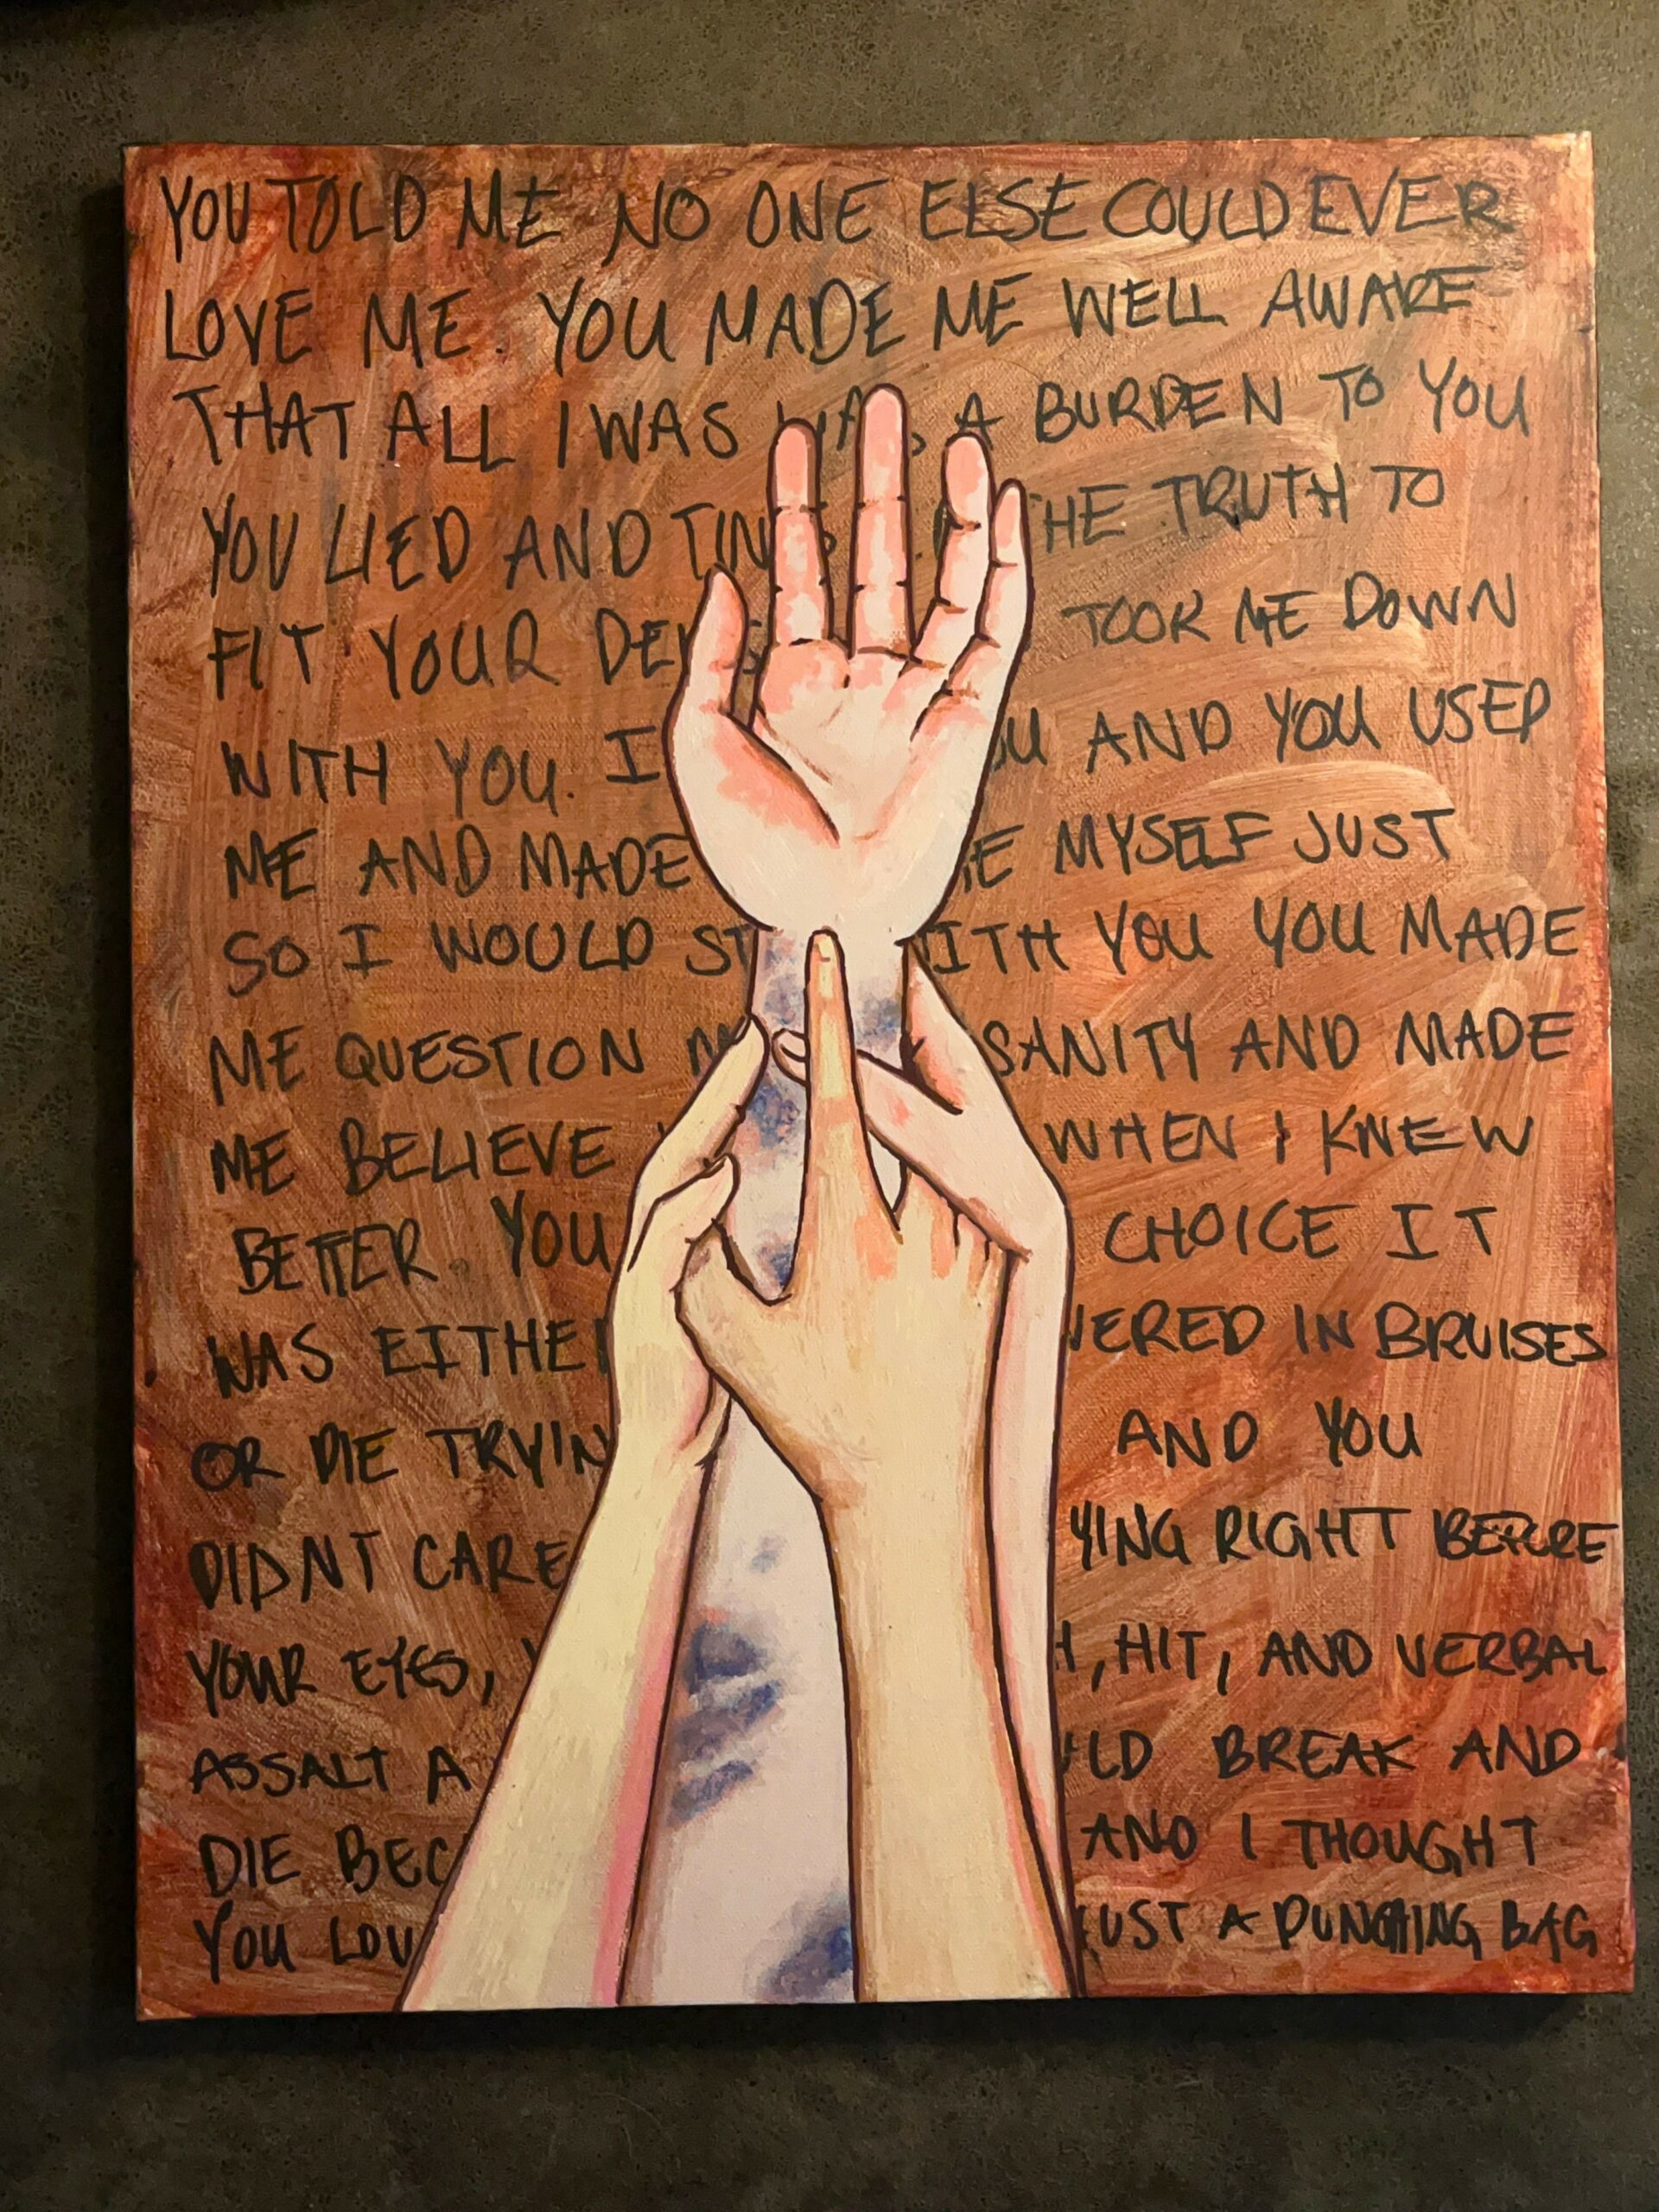 YOU TOLD ME NO ONE ELSE COULD EVER
LOVE ME. YOU MADE ME WELL AWARE
THAT ALL I WAS A BURDEN TO YOU
YOU LIED AND THE TRUTH TO
FIT YOUR TOOK ME DOWN
WITH YOU. I AND YOU USED
ME AND MADE MYSELF JUST
SO I WOULD WITH YOU YOU MADE
ME QUESTION SANITY AND MADE
ME BELIEVE WHEN I KNEW
BETTER. YOU CHOICE IT
WAS EITHER IN BRUISES
OR DIE AND YOU
DIDNT CARE RIGHT BEFORE
YOUR EYES, HIT, AND VERBAL
ASSALT A BREAK AND
DIE AND I THOUGHT
YOU A PUNCHING BAG